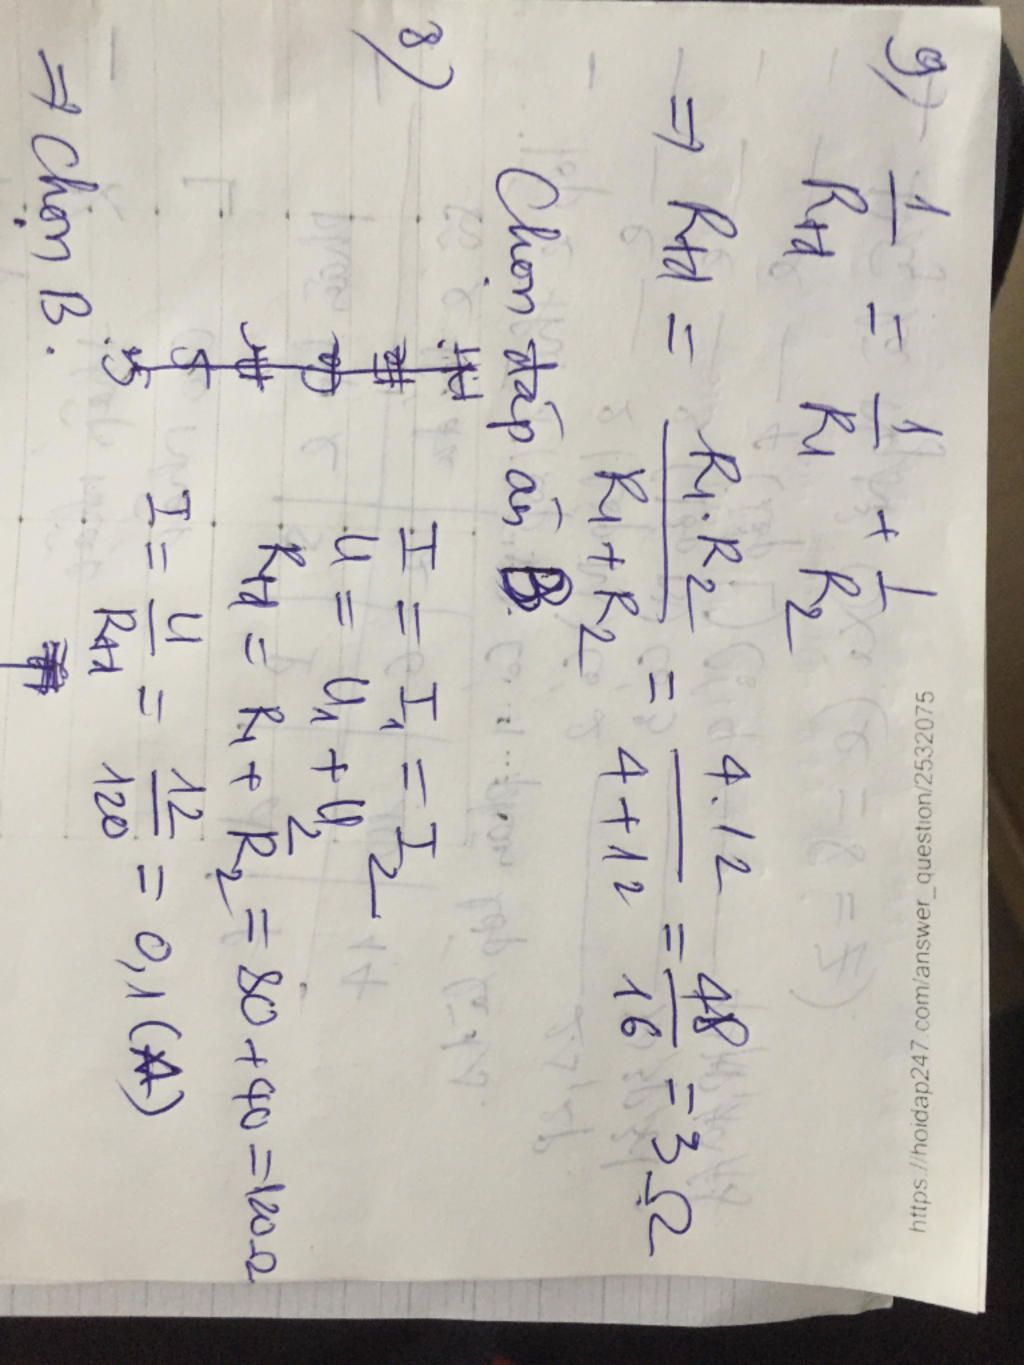 9) 1/Rtđ = 1/R1 + 1/R2
⇒ Rtđ = R1.R2/R1+R2 = 4.12/4+12 = 48/16 = 3Ω
Chọn đáp án B.
8)
I = I1 = I2
U = U1 + U2
Rtđ = R1 + R2 = 80 + 40 = 120Ω
I = U/Rtđ = 12/120 = 0,1 (A)
⇒ Chọn B.
https://hoidap247.com/answer_question/2532075